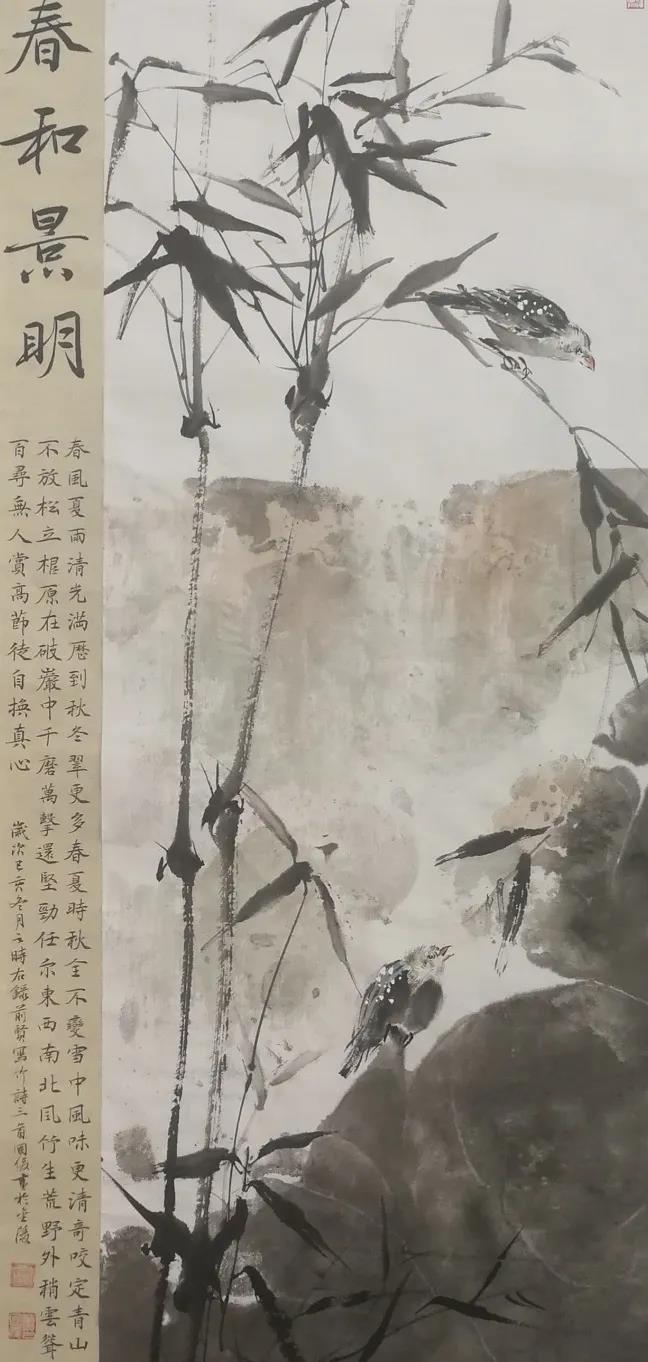 春和景明
春風夏雨清光滿歷到秋冬翠更多春夏時秋全不變雪中風味更清奇咬定青山
不放松立根原在破巖中千磨萬擊還堅勁任尔東西南北風竹生荒野外稍雲聳
百尋無人賞高節徒自換真心
歲次己亥冬月之時右錄前賢寫竹詩三首國俊畫於金陵